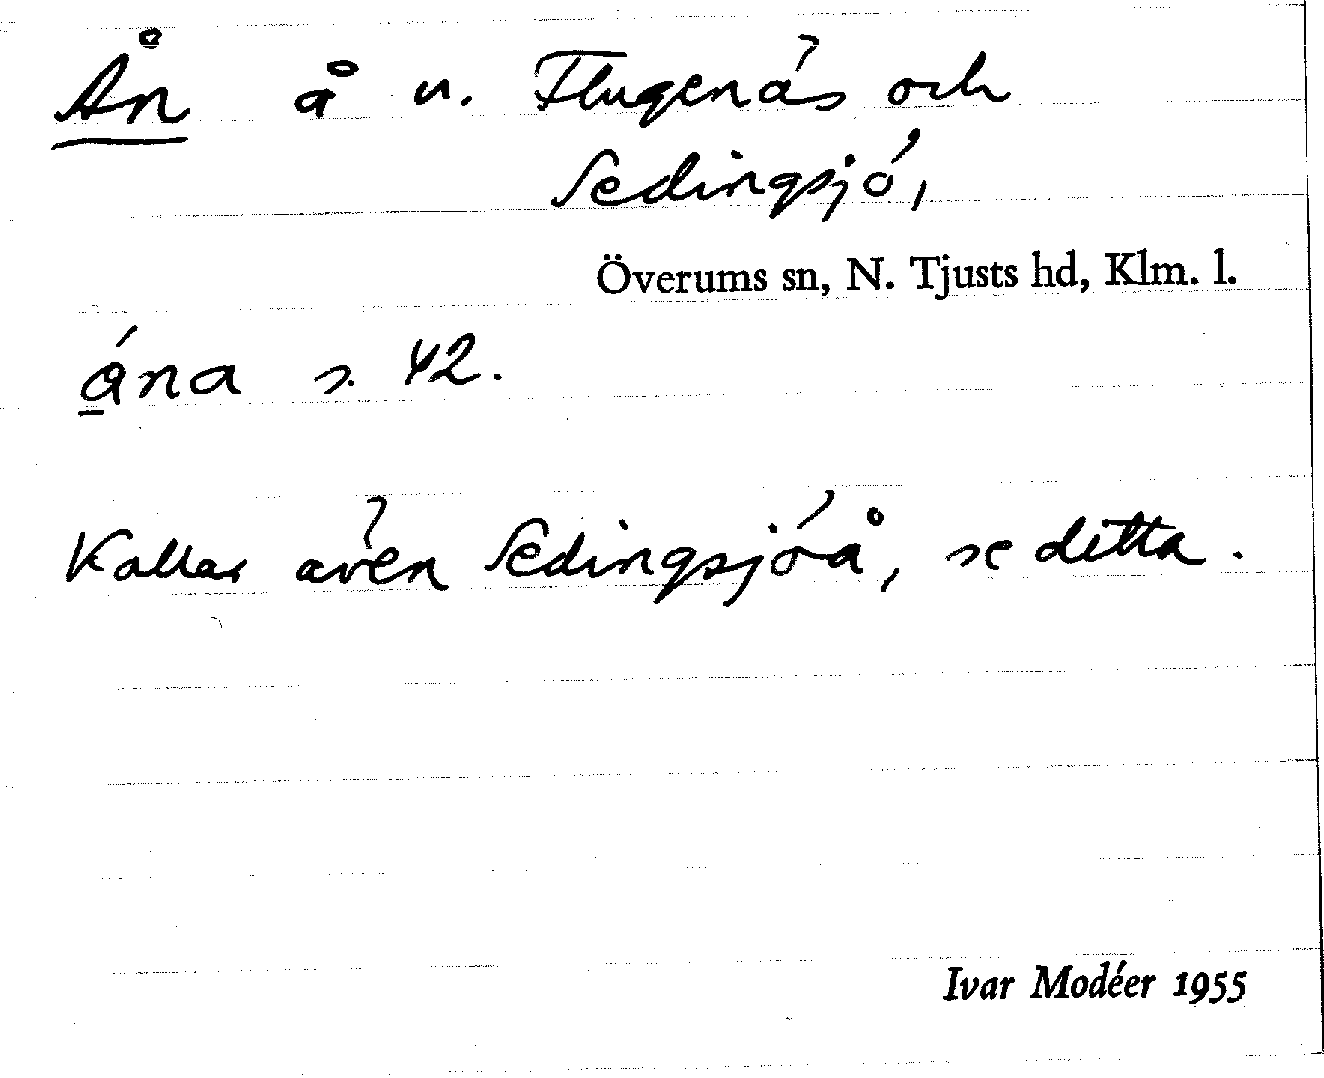 Ån å u. Flugenäs och
Sedingsjö,
Överums sn, N. Tjusts hd, Klm. l.
ána s. 42.
Kallas även Sedingsjöå, se detta.
Ivar Modéer 1955